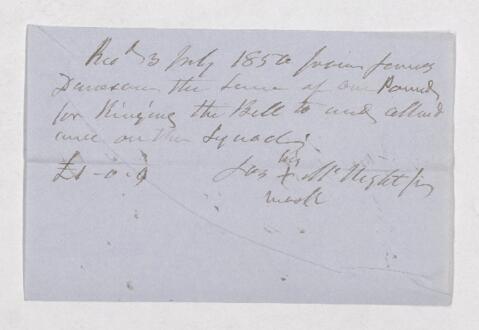 Recd 3 July 1850 from James
Dawson the sum of one Pound
for Ringing the Bell to and attend
ance on the Squad
£1-0-0 Jas his X McNight
mark